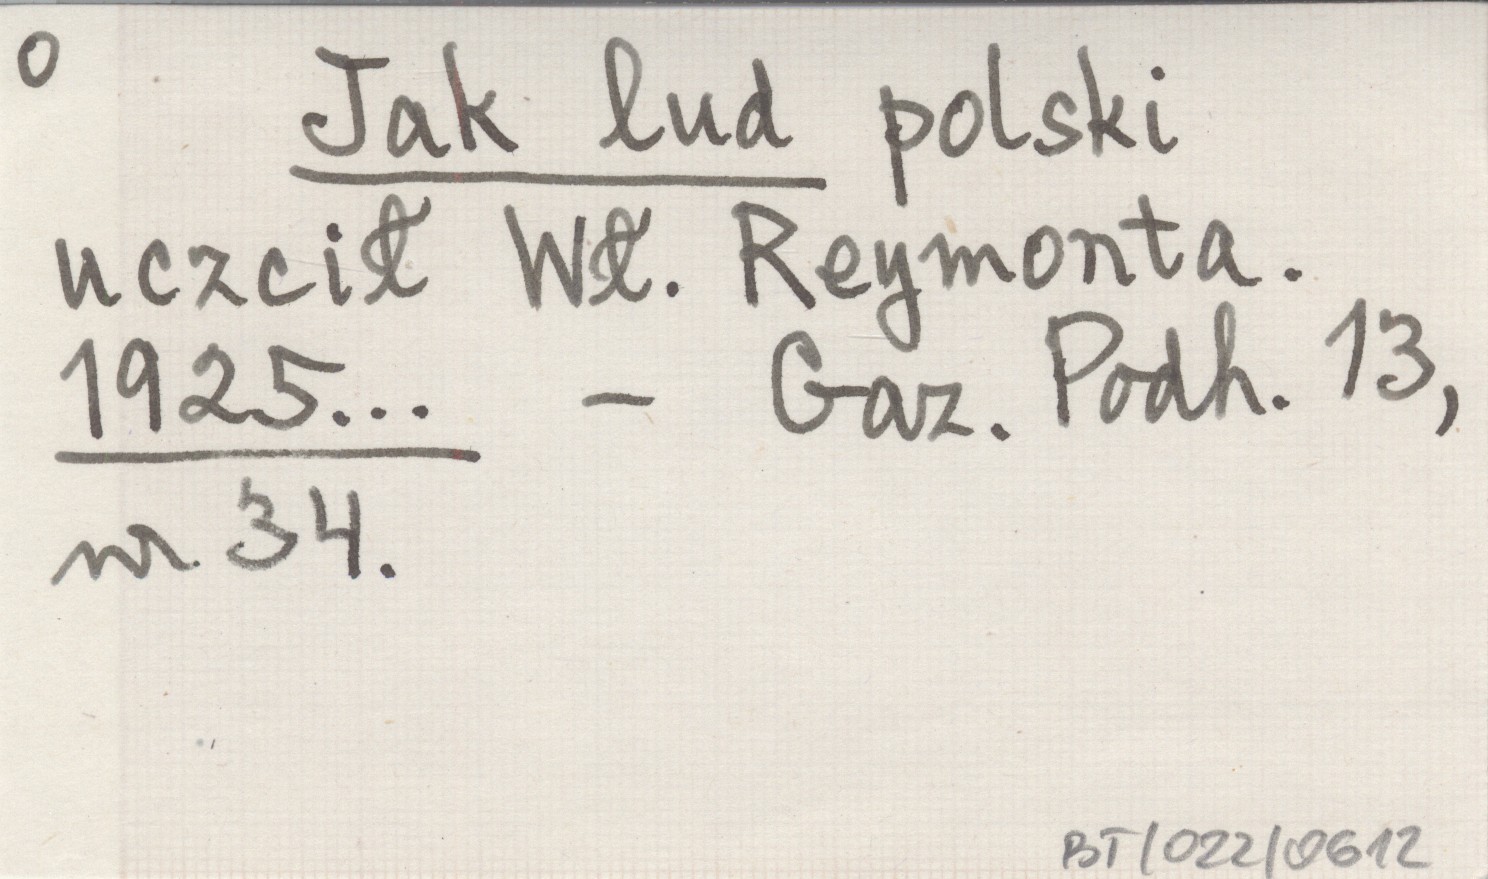 O
Jak lud polski
uczcił Wł. Reymonta.
1925... - Gaz. Podh. 13,
nr 34.
BT/022/0612